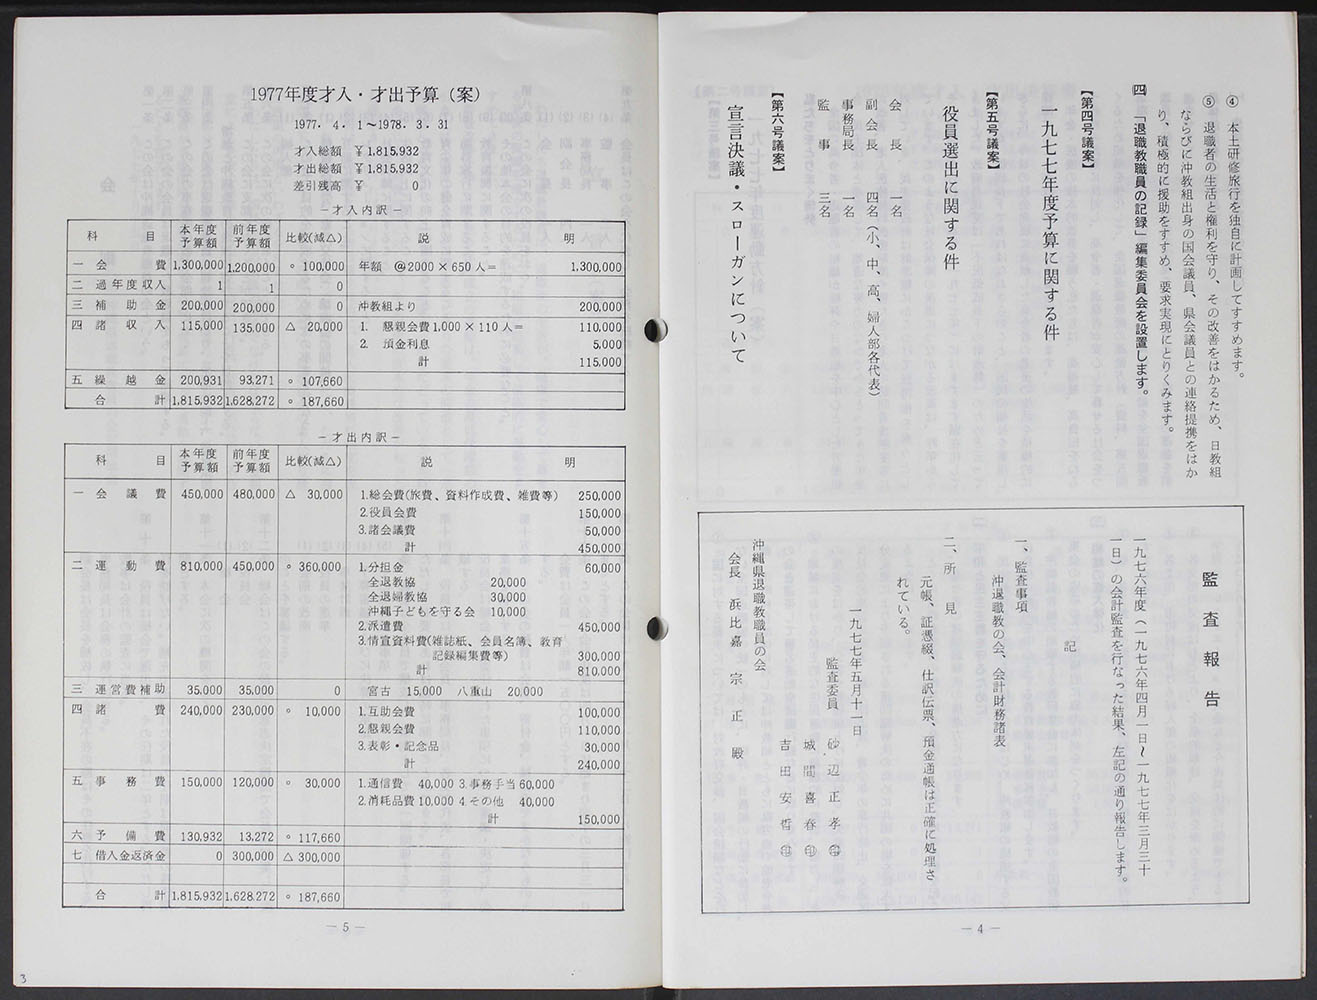 ④　本土研修旅行を独自に計画してすすめます。
⑤　退職者の生活と権利を守り、その改善をはかるため、日教組
ならびに沖教組出身の国会議員、県会議員との連絡提携をはか
り、積極的に援助をすすめ、要求実現にとりくみます。
四　「退職教職員の記録」編集委員会を設置します。
【第四号議案】
一九七七年度予算に関する件
【第五号議案】
役員選出に関する件
会長　一名
副会長　四名（小、中、高、婦人部各代表）
事務局長　一名
監事　三名
【第六号議案】
宣言決議・スローガンについて
監査報告
一九七六年度（一九七六年四月一日～一九七七年三月三十
一日）の会計監査を行なった結果、左記の通り報告します。
記
一、監査事項
沖退職教の会、会計財務諸表
二、所見
元帳、証憑綴、仕訳伝票、預金通帳は正確に処理さ
れている。
一九七七年五月十一日
監査委員　砂辺正孝㊞
城間喜春㊞
吉田安哲㊞
沖縄県退職教職員の会
会長　浜比嘉宗正殿
— 4 —
1977年度才入・才出予算（案）
1977. 4. 1～1978. 3. 31
才入総額　￥1,815,932
才出総額　￥1,815,932
差引残高　￥　0
－才入内訳－
科　目　本年度予算額　前年度予算額　比較(減△)　説　明
一　会費　1,300,000　1,200,000　。100,000　年額　@2000×650人＝　1,300,000
二　過年度収入　1　1　0
三　補助金　200,000　200,000　0　沖教組より　200,000
四　諸収入　115,000　135,000　△　20,000　1.　懇親会費1,000×110人＝　110,000
2.　預金利息　5,000
計　115,000
五　繰越金　200,931　93,271　。107,660
合計　1,815,932　1,628,272　。187,660
－才出内訳－
科　目　本年度予算額　前年度予算額　比較(減△)　説　明
一　会議費　450,000　480,000　△　30,000　1.総会費(旅費、資料作成費、雑費等)　250,000
2.役員会費　150,000
3.諸会議費　50,000
計　450,000
二　運動費　810,000　450,000　。360,000　1.分担金　60,000
全退教協　20,000
全退婦教協　30,000
沖縄子どもを守る会　10,000
2.派遣費　450,000
3.情宣資料費(雑誌紙、会員名簿、教育
記録編集費等)　300,000
計　810,000
三　運営費補助　35,000　35,000　0　宮古　15,000　八重山　20,000
四　諸費　240,000　230,000　。10,000　1.互助会費　100,000
2.懇親会費　110,000
3.表彰・記念品　30,000
計　240,000
五　事務費　150,000　120,000　。30,000　1.通信費　40,000　3.事務手当60,000
2.消耗品費10,000　4.その他　40,000
計　150,000
六　予備費　130,932　13,272　。117,660
七　借入金返済金　0　300,000　△300,000
合計　1,815,932　1,628,272　。187,660
— 5 —
3